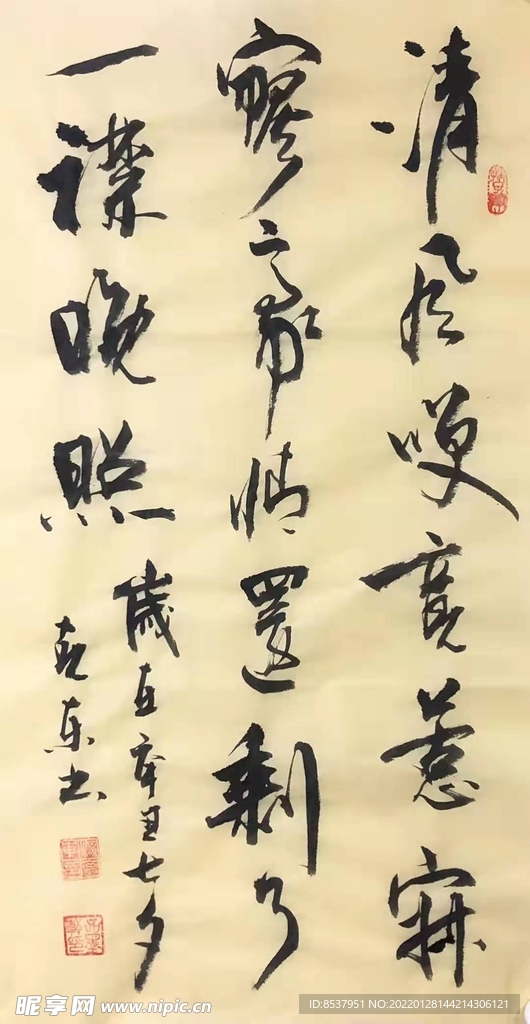 清风咲竟惹寂
寥豪情還剩了
一襟晚照
歲在辛丑七夕
东书
昵享网 www.nipic.cn
ID:8537951 NO:20220128144214306121